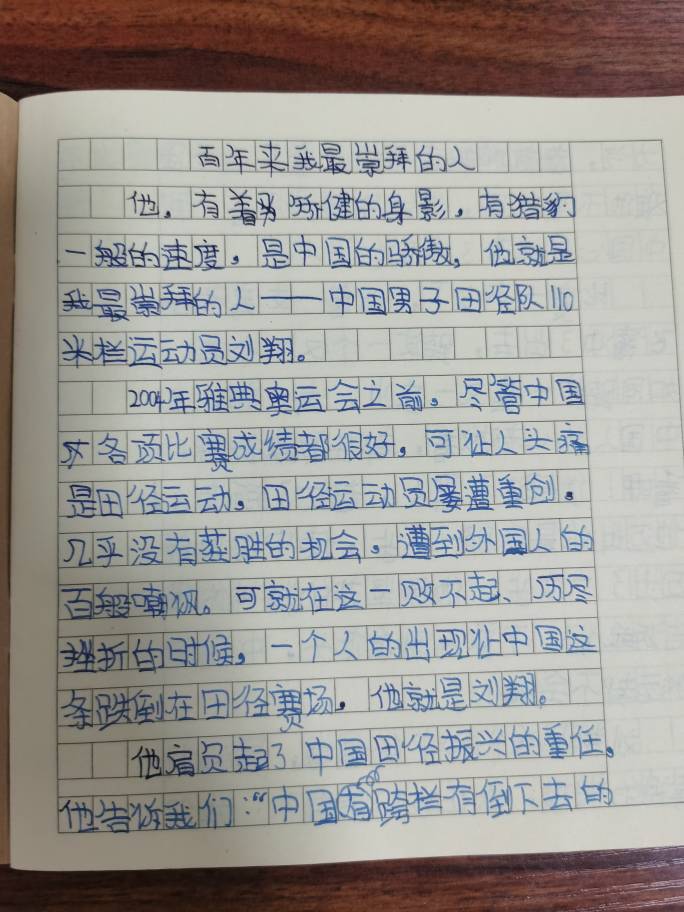 百年来我最崇拜的人
他，有着矫健的身影，有猎豹
一般的速度，是中国的骄傲，他就是
我最崇拜的人——中国男子田径队110
米栏运动员刘翔。
2004年雅典奥运会之前，尽管中国
各项比赛成绩都很好，可让人头痛
是田径运动，田径运动员屡遭重创，
几乎没有获胜的机会，遭到外国人的
百般嘲讽。可就在这一败不起、历尽
挫折的时候，一个人的出现让中国这
条跌倒在田径赛场，他就是刘翔。
他肩负起了中国田径振兴的重任。
他告诉我们：“中国有跨栏有倒下去的